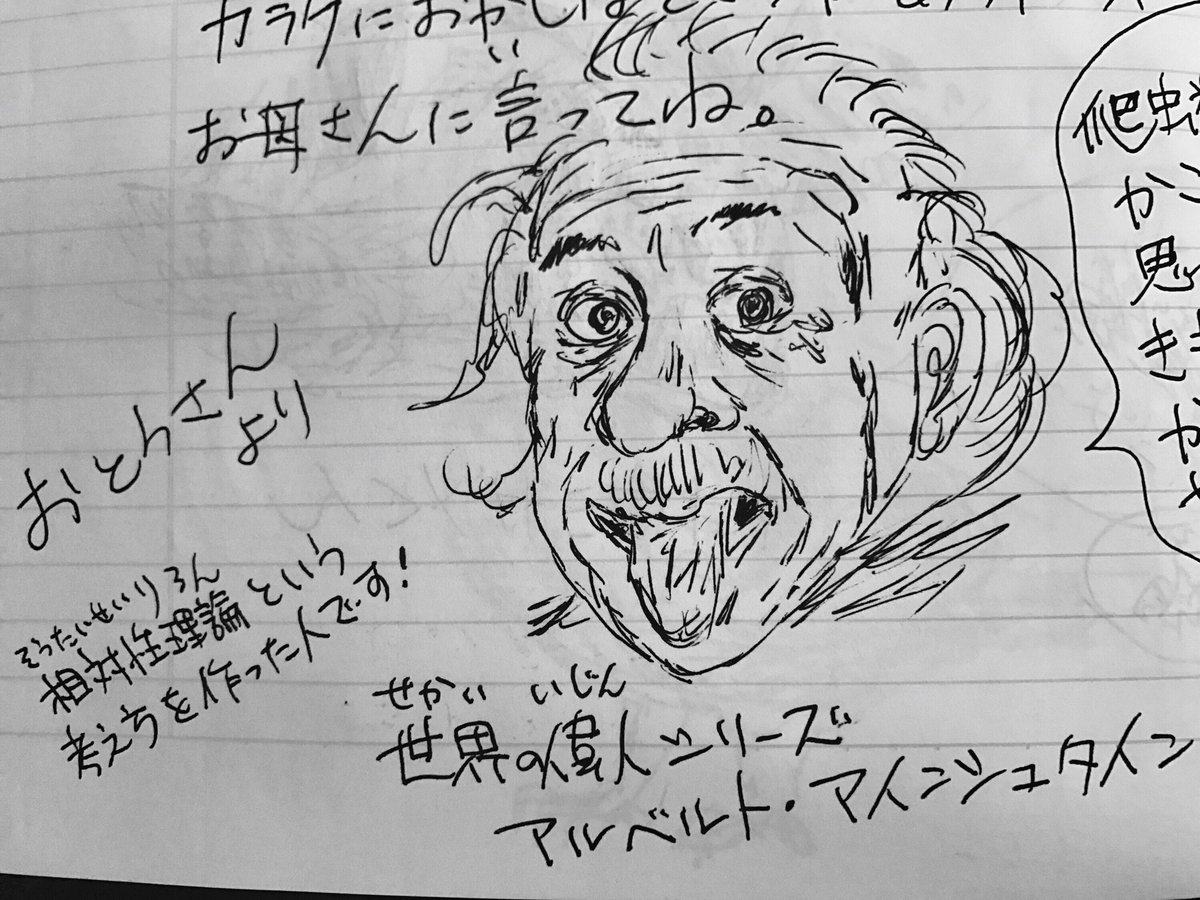 カラダに
い
お母さんに言ってね。
爬虫
か
思
き
か
おとうさん
より
そうたいせいりろん
相対性理論という
考え方を作った人です!
せかい いじん
世界の偉人シリーズ
アルベルト・アインシュタイン